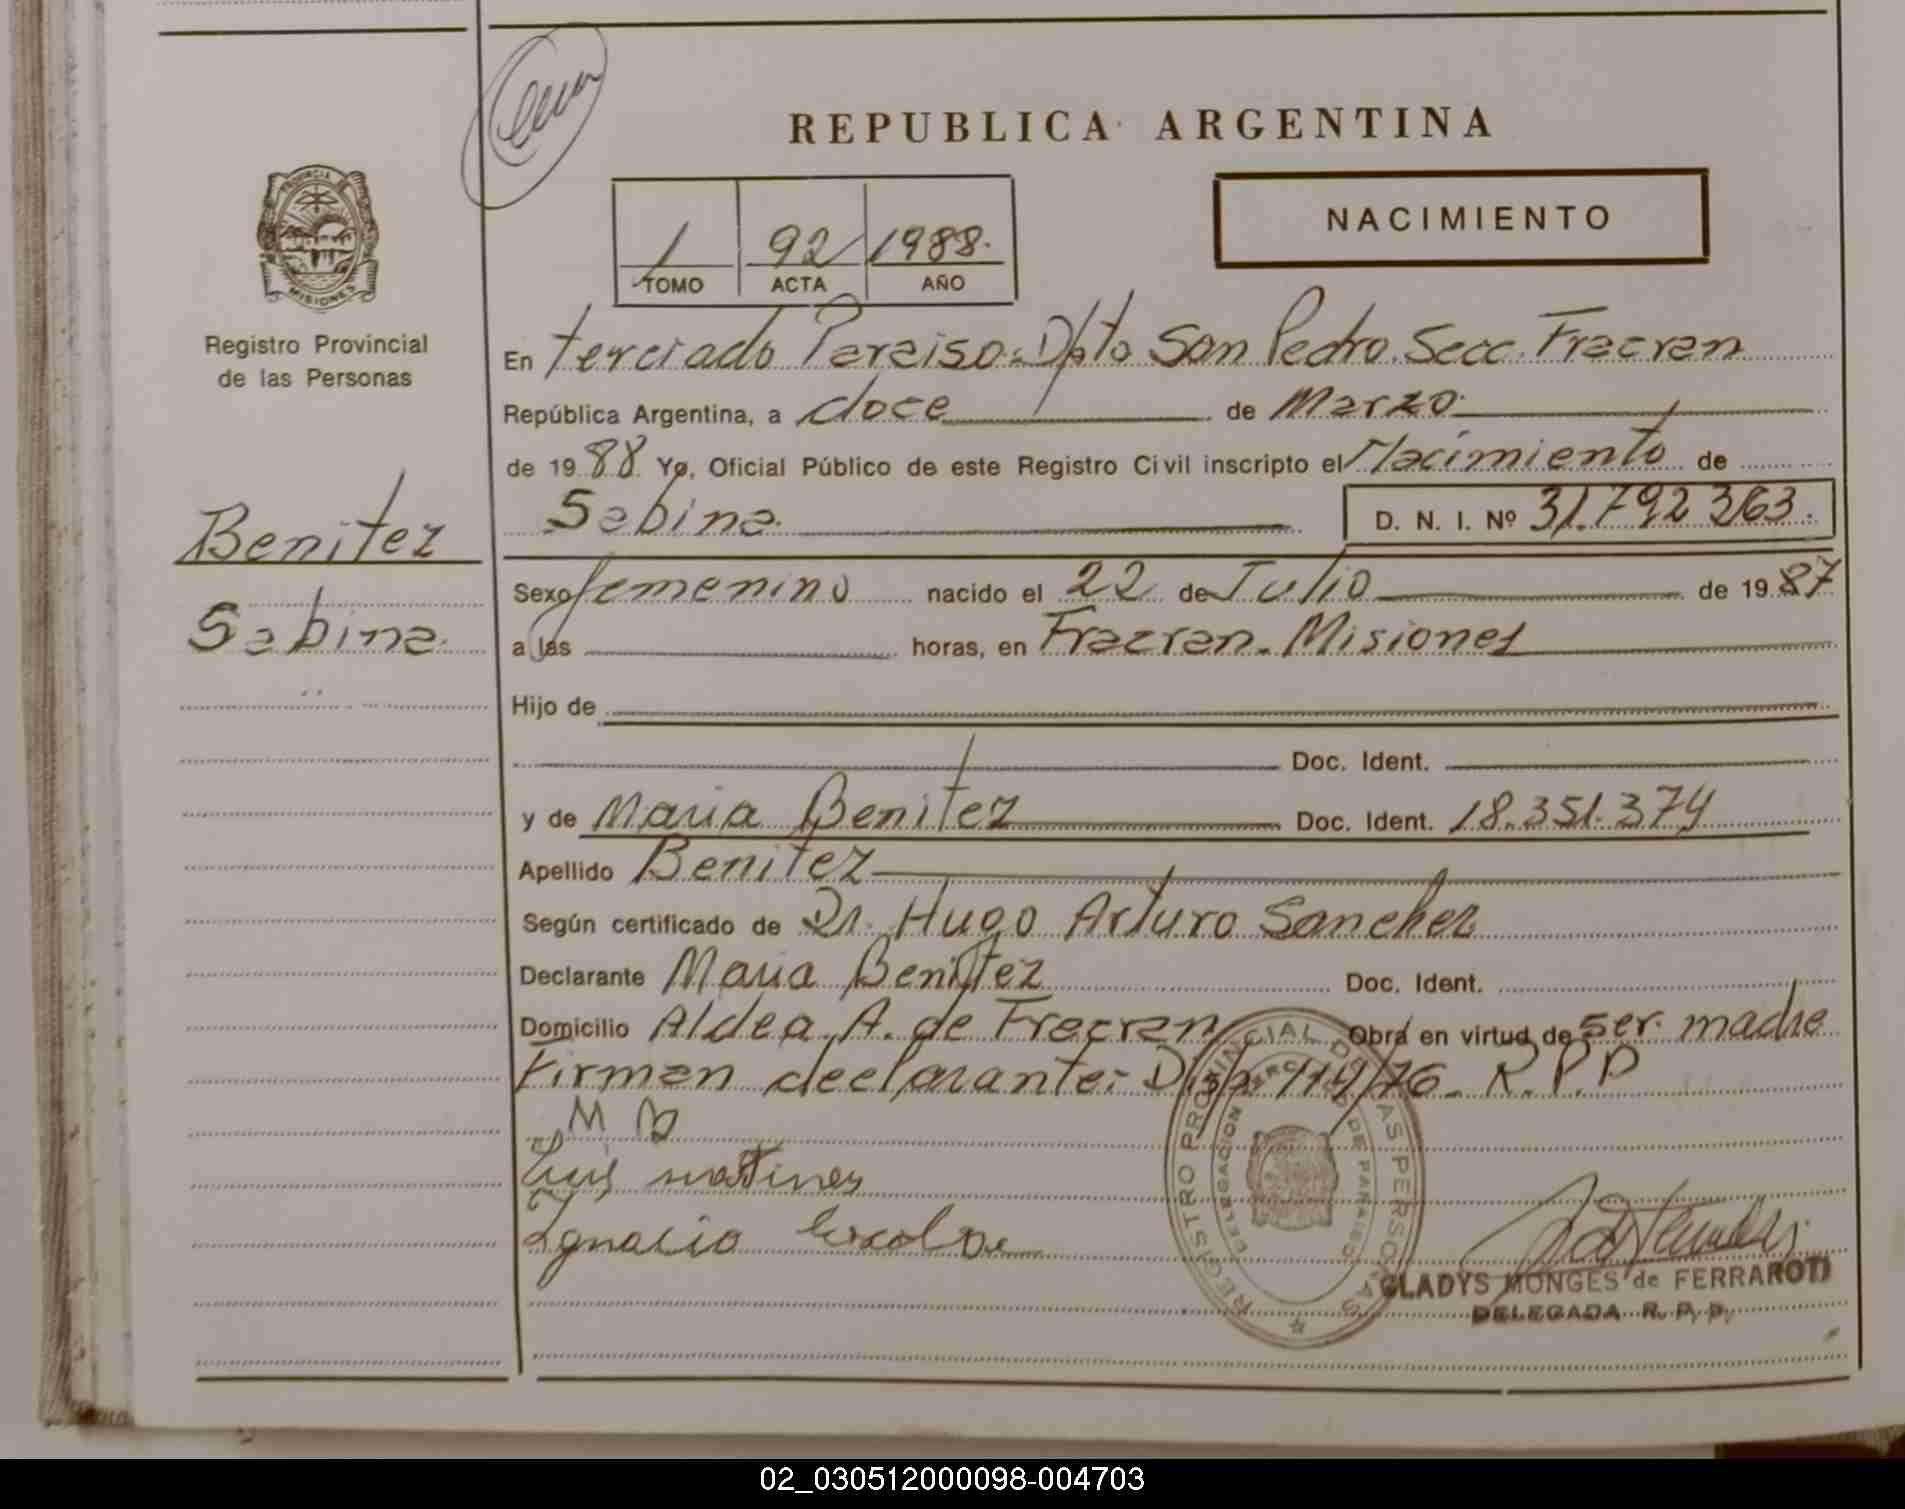 REPUBLICA ARGENTINA
PROVINCIA DE
MISIONES
Registro Provincial
de las Personas
1 92 1988.
TOMO ACTA AÑO
NACIMIENTO
En Terciado Paraiso-Dpto San Pedro. Secc. Fracran
República Argentina, a doce de Marzo
de 1988 Yo, Oficial Público de este Registro Civil inscripto el Nacimiento de
Sabina. D. N. I. Nº 31.792363.
Benitez
Sabina.
Sexo femenino nacido el 22 de Julio de 1987
a las horas, en Fracran. Misiones
Hijo de
Doc. Ident.
y de Maria Benitez Doc. Ident. 18.351.374
Apellido Benitez
Según certificado de Dr. Hugo Arturo Sanchez
Declarante Maria Benitez Doc. Ident.
Domicilio Aldea A. de Fracran Obra en virtud de ser madre
Firman declarante:- Disp. 114/76- R.P.P
M B
Luis Martines
Ignacio
REGISTRO PROVINCIAL DE LAS PERSONAS
DELEGACION DE PARAISO
GLADYS MONGES de FERRAROTI
DELEGADA R. P. P.
02_030512000098-004703